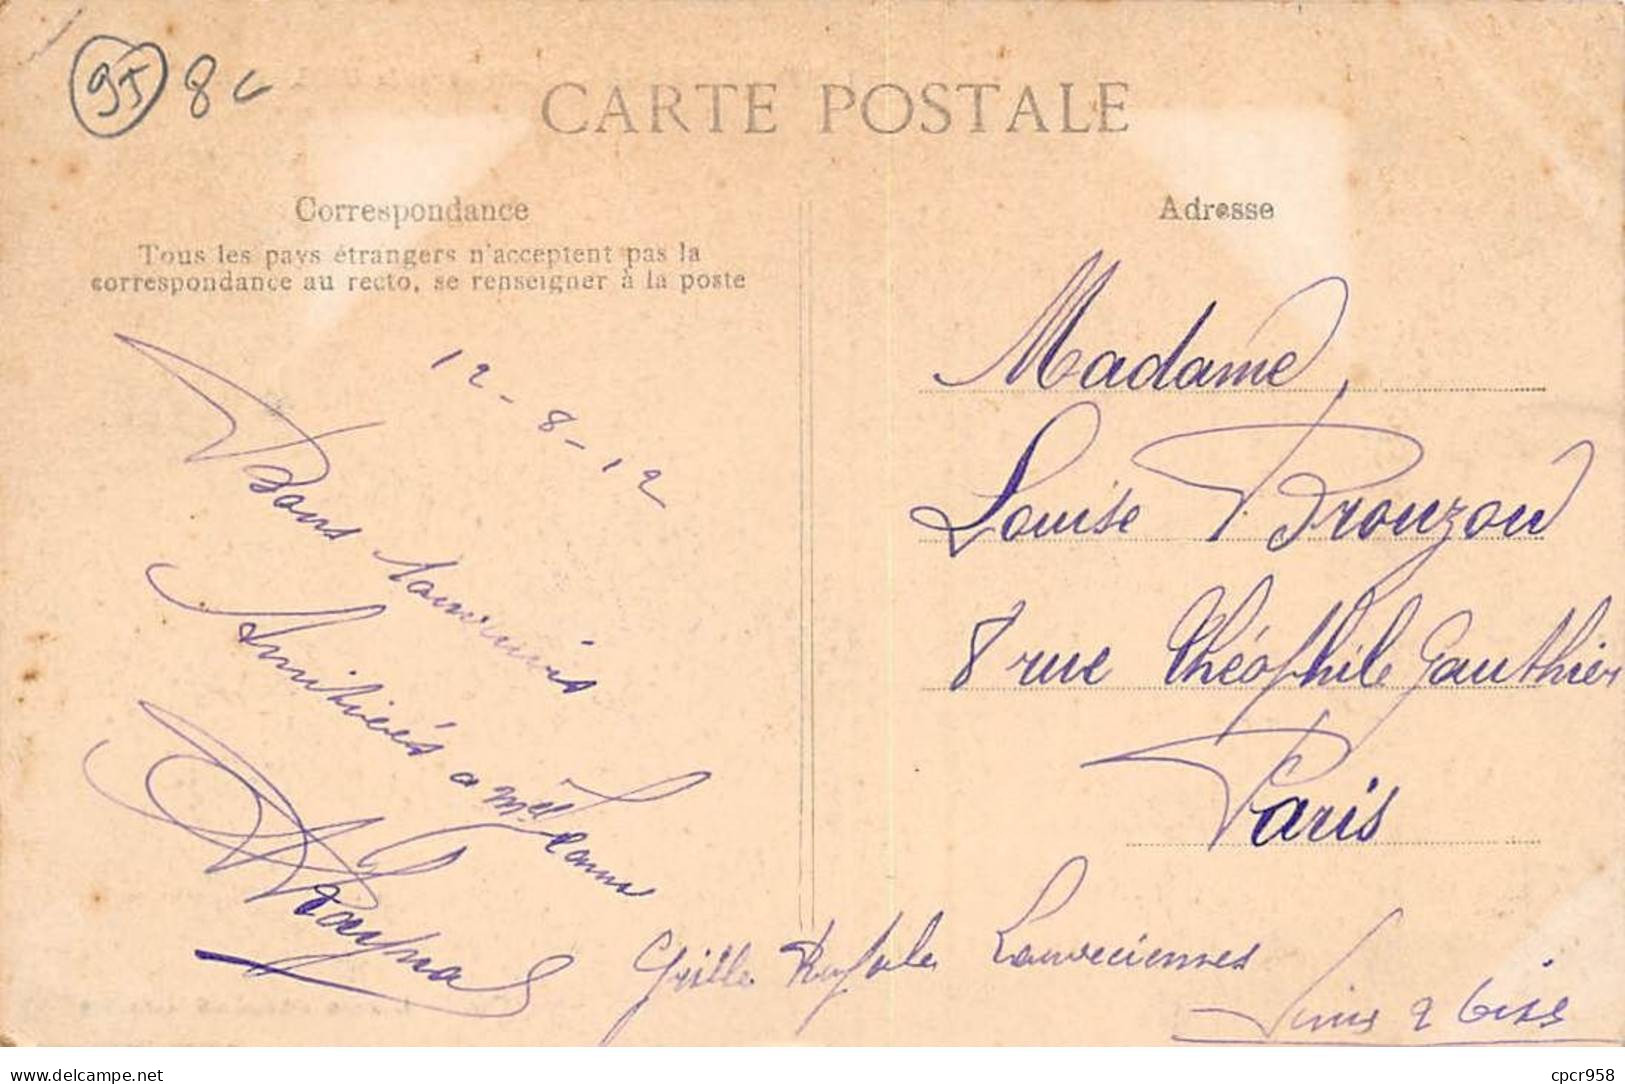 95 8c
CARTE POSTALE
Correspondance
Tous les pays étrangers n'acceptent pas la
correspondance au recto, se renseigner à la poste
12-8-12
Bons souvenirs
Amitiés a Mell Jeanne
Raynal
Adresse
Madame
Louise Brouzou
8 rue Théophile Gauthier
Paris
Grille Royale Louveciennes
Seine & Oise
delcampe.net
cpcr958